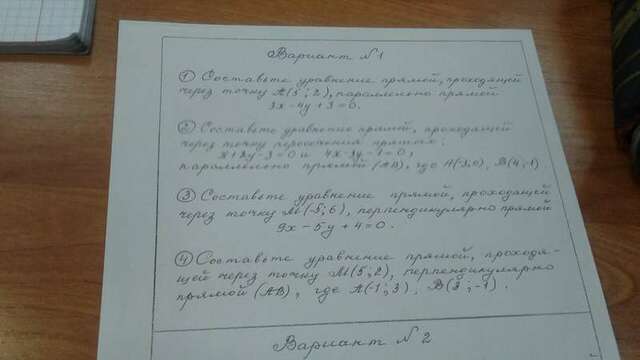 Вариант №1
① Составьте уравнение прямой, проходящей
через точку М(5; 2), параллельно прямой
3x - 4y + 3 = 0.
② Составьте уравнение прямой, проходящей
через точку пересечения прямых:
и
параллельно прямой (АВ), где
③ Составьте уравнение прямой, проходящей
через точку М(-5; 6), перпендикулярно прямой
9x - 5y + 4 = 0.
④ Составьте уравнение прямой, проходя-
щей через точку М(5; 2), перпендикулярно
прямой (АВ), где А(-1; 3), В(3; -1).
Вариант №2